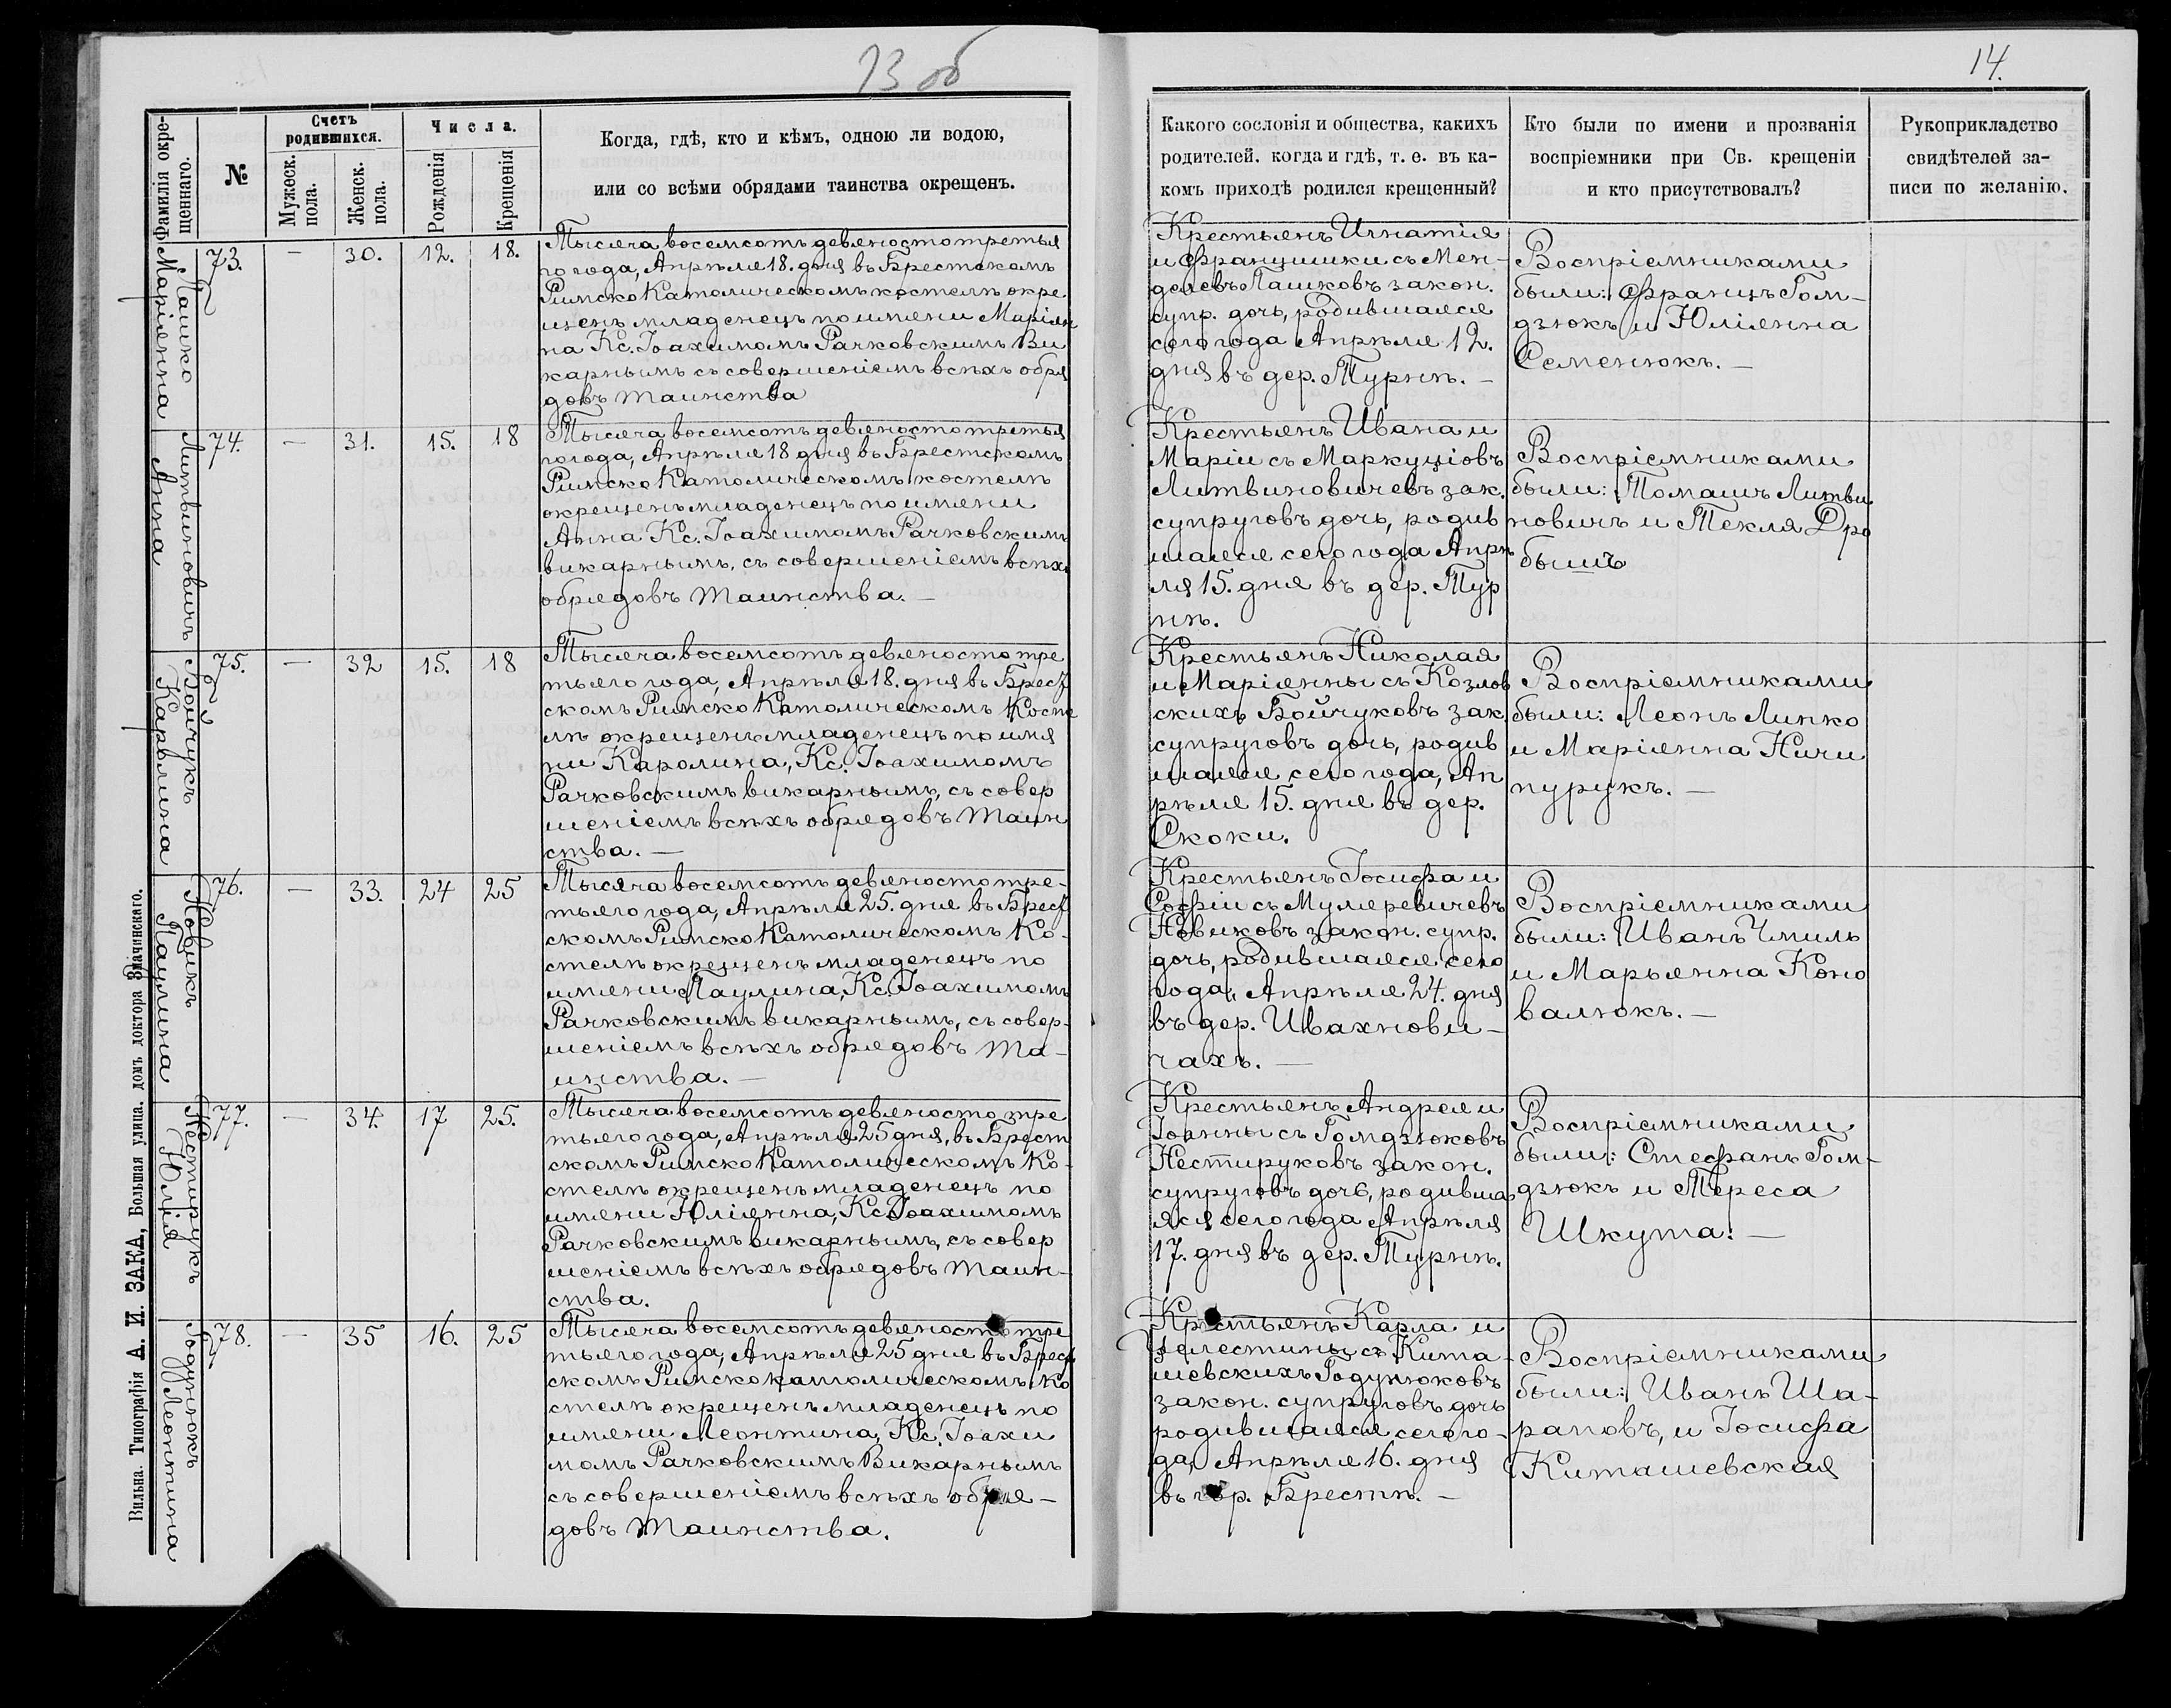 13 об
14.
Фамилія окре-
щеннаго.
№
Счетъ
родившихся.
Мужеск.
пола.
Женск.
пола.
Числа.
Рожденія
Крещенія
Когда, гдѣ, кто и кѣмъ, одною ли водою,
или со всѣми обрядами таинства окрещенъ.
Какого сословія и общества, какихъ
родителей. когда и гдѣ, т. е. въ ка-
комъ приходѣ родился крещенный?
Кто были по имени и прозванія
воспріемники при Св. крещеніи
и кто присутствовалъ?
Рукоприкладство
свидѣтелей за-
писи по желанію.
Пашко
Маріянна
73.
—
30.
12.
18.
Тысяча восемсотъ девяносто третья
го года, Апрѣля 18. дня въ Брестскомъ
Римско Католическомъ костелѣ окре
щенъ младенецъ по имени Маріян
на Кс. Іоахимомъ Рачковскимъ Ви
карнымъ съ совершеніемъ всѣхъ обря
довъ Таинства
Крестьянъ Игнатія
и Францишки съ Мен-
делевъ Пашковъ закон.
супр. дочь, родившаяся
сего года Апрѣля 12.
дня въ дер. Турнѣ. —
Воспріемниками
были: Францъ Гом-
дзюкъ и Юліянна
Семенюкъ. —
Литвиновичъ
Анна
74.
—
31.
15.
18
Тысяча восемсотъ девяносто третья
го года, Апрѣля 18 дня въ Брестскомъ
Римско Католическомъ костелѣ
окрещенъ младенецъ по имени
Анна Кс. Іоахимомъ Рачковскимъ
викарнымъ, съ совершеніемъ всѣхъ
обрядовъ Таинства. —
Крестьянъ Ивана и
Маріи съ Маркуціовъ
Литвиновичевъ зак.
супруговъ дочь, родив
шаяся сего года Апрѣ
ля 15. дня въ дер. Тур
нѣ.
Воспріемниками
были: Томашъ Литви
новичъ и Текля Дро
бышъ
Бойчукъ
Каролина
75.
—
32
15.
18
Тысяча восемсотъ девяносто тре
тьяго года, Апрѣля 18. дня въ Брест
скомъ Римско Католическомъ Косте
лѣ окрещенъ младенецъ по имя
ни Каролина, Кс. Іоахимомъ
Рачковскимъ викарнымъ, съ совер
шеніемъ всѣхъ обрядовъ Таин
ства. —
Крестьянъ Николая
и Маріянны съ Козлов
скихъ Бойчуковъ зак.
супруговъ дочь, родив
шаяся сего года, Ап
рѣля 15. дня въ дер.
Скоки.
Воспріемниками
были: Леонъ Липко
и Маріянна Ничи
пурукъ. —
Новикъ
Паулина
76.
—
33.
24
25
Тысяча восемсотъ девяносто тре-
тьяго года, Апрѣля 25. дня въ Брест
скомъ Римско Католическомъ Ко-
стелѣ окрещенъ младенецъ по
имени Паулина, Кс. Іоахимомъ
Рачковскимъ викарнымъ, съ совер-
шеніемъ всѣхъ обрядовъ Та-
инства. —
Крестьянъ Іосифа и
Софіи съ Муляревичевъ
Новиковъ закон. супр.
дочь, родившаяся сего
года, Апрѣля 24. дня
въ дер. Ивахнови-
чахъ. —
Воспріемниками
были: Иванъ Чмиль
и Марьянна Коно
валюкъ. —
Нестирукъ
Юлія
77.
—
34.
17
25.
Тысяча восемсотъ девяносто тре
тьяго года, Апрѣля 25 дня, въ Брест
скомъ Римско Католическомъ Ко-
стелѣ окрещенъ младенецъ по
имени Юліянна, Кс. Іоахимомъ
Рачковскимъ викарнымъ, съ совер
шеніемъ всѣхъ обрядовъ Таин-
ства.
Крестьянъ Андрея и
Іоанны съ Гомдзюковъ
Нестируковъ закон.
супруговъ дочь, родивша
яся сего года Апрѣля
17. дня въ дер. Турнѣ.
Воспріемниками
были: Стефанъ Гом-
дзюкъ и Тереса
Шкута. —
Годунюкъ
Леонтина
78.
—
35
16.
25
Тысяча восемсотъ девяносто тре
тьяго года, Апрѣля 25 дня въ Брест
скомъ Римско католическомъ Ко
стелѣ окрещенъ младенецъ по
имени Леонтина, Кс. Іоахи
момъ Рачковскимъ Викарнымъ
съ совершеніемъ всѣхъ обря-
довъ Таинства.
Крестьянъ Карла и
Целестины съ Кита-
шевскихъ Годунюковъ
закон. супруговъ дочь
родившаяся сего го-
да, Апрѣля 16. дня
въ гор. Брестѣ. —
Воспріемниками
были: Иванъ Ша-
раповъ, и Іосифа
Киташевская
Вильна. Типографія А. И. ЗАКА, Большая улица. домъ доктора Значинскаго.